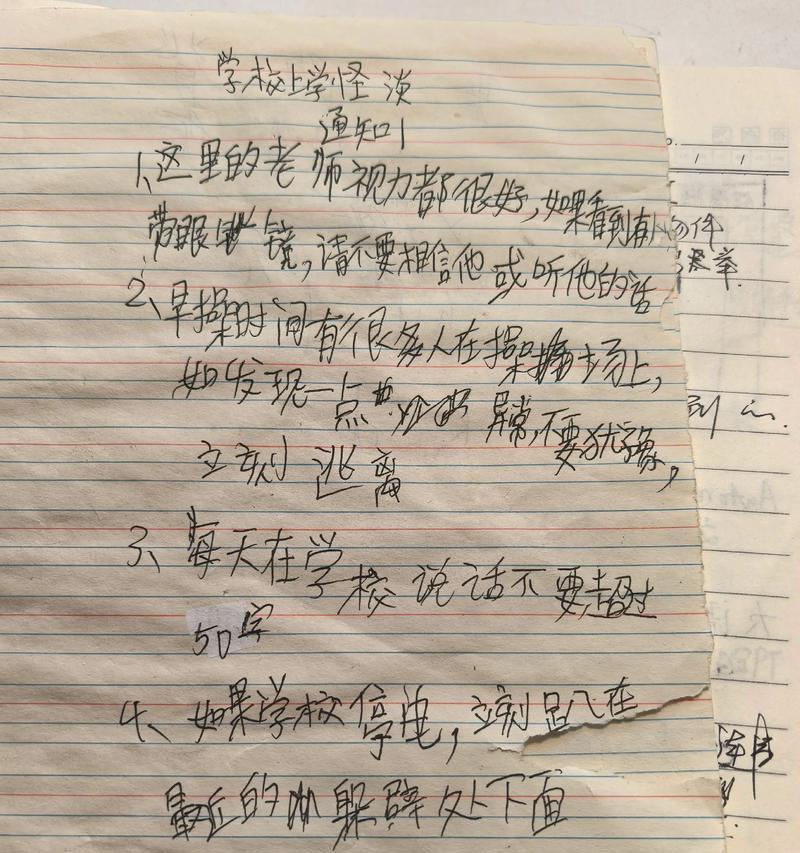 学校上学怪谈
通知1
1、这里的老师视力都很好,如果看到有人
带眼镜,请不要相信他或听他的话
2、早操时间有很多人在操场上,
如发现一点异常,不要犹豫,
立刻逃离
3、每天在学校说话不要超过
50字
4、如果学校停电,立刻趴在
最近的躲避处下面